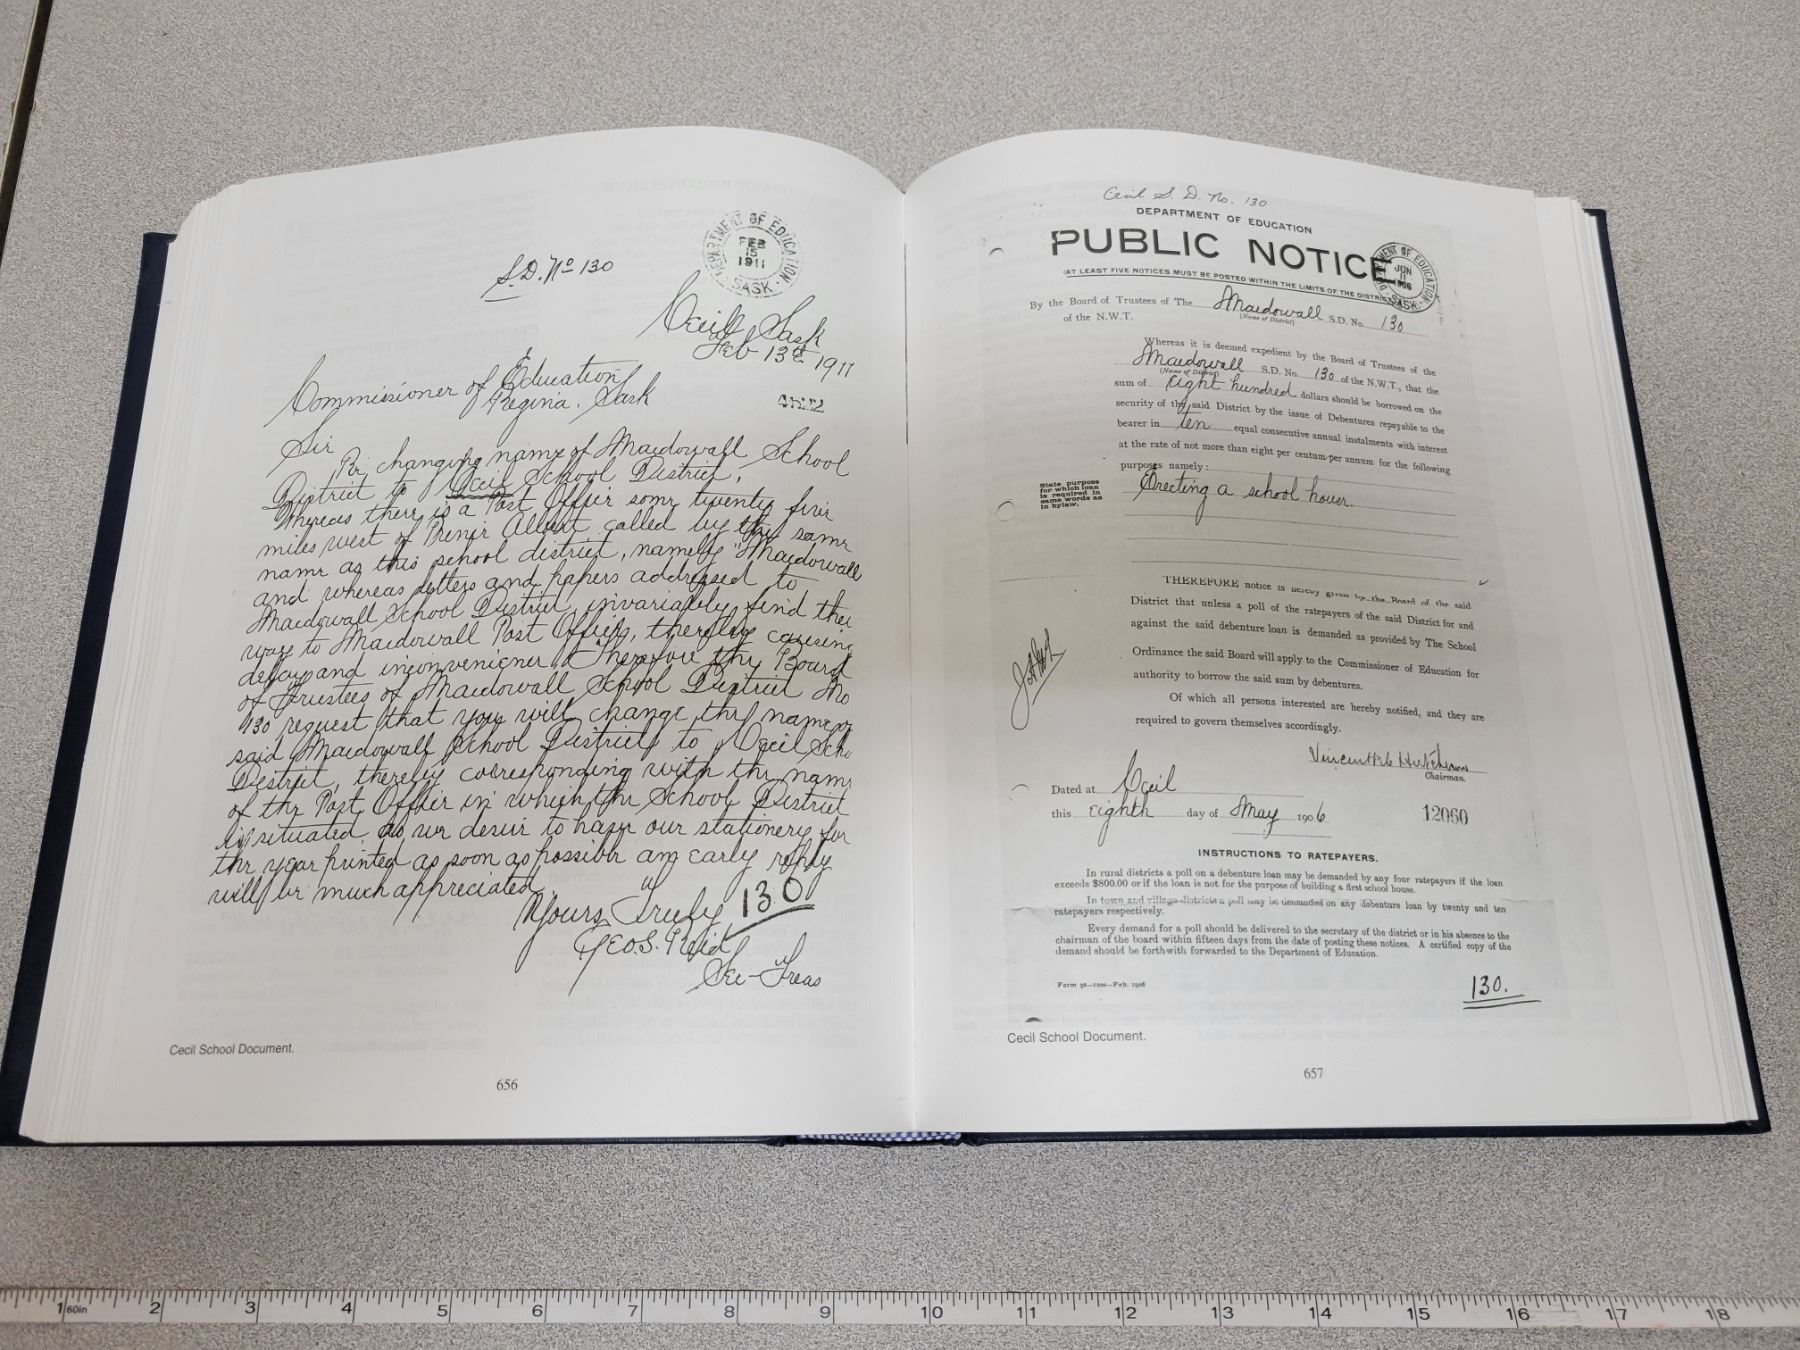 S.D. No 130
DEPARTMENT OF EDUCATION
FEB
15
1911
SASK.
Cecil, Sask
Feb 13th 1911
Commissioner of Education
Regina. Sask
4522
Sir
Re, changing name of Maidowall School
District to Cecil School District,
Whereas there is a Post Office some twenty five
miles west of Prince Albert called by the same
name as this school district, namely "Maidowall
and whereas letters and papers addressed to
Maidowall School District, invariably find their
way to Maidowall Post Office, thereby causing
delay and inconvenience. Therefore the Board
of Trustees of Maidowall School District No
130 request that you will change the name of
said Maidowall School District to Cecil Scho
District, thereby corresponding with the name
of the Post Office in which the School District
is situated, as we desire to have our stationery for
the year printed as soon as possible an early reply
will be much appreciated.
Yours Truly
130
Geo. S. Reid
Sec-Treas
Cecil School Document.
656
Cecil S. D. No. 130
DEPARTMENT OF EDUCATION
PUBLIC NOTICE
(AT LEAST FIVE NOTICES MUST BE POSTED WITHIN THE LIMITS OF THE DISTRICT
JUN
11
SASK.
By the Board of Trustees of The Maidowall S.D. No. 130
(Name of District)
of the N.W.T.
Whereas it is deemed expedient by the Board of Trustees of the
Maidowall S.D. No. 130 of the N.W.T., that the
(Name of District)
sum of Eight hundred dollars should be borrowed on the
security of the said District by the issue of Debentures repayable to the
bearer in ten equal consecutive annual instalments with interest
at the rate of not more than eight per centum per annum for the following
purposes namely:
State purpose
for which loan
is required in
same words as
in bylaw.
Erecting a school house.
THEREFORE notice is hereby given by the Board of the said
District that unless a poll of the ratepayers of the said District for and
against the said debenture loan is demanded as provided by The School
Ordinance the said Board will apply to the Commissioner of Education for
authority to borrow the said sum by debentures.
Of which all persons interested are hereby notified, and they are
required to govern themselves accordingly.
Chairman.
Dated at Cecil
this eighth day of May 1906
12060
INSTRUCTIONS TO RATEPAYERS.
In rural districts a poll on a debenture loan may be demanded by any four ratepayers if the loan
exceeds $800.00 or if the loan is not for the purpose of building a first school house.
In town and village districts a poll may be demanded on any debenture loan by twenty and ten
ratepayers respectively.
Every demand for a poll should be delivered to the secretary of the district or in his absence to the
chairman of the board within fifteen days from the date of posting these notices. A certified copy of the
demand should be forthwith forwarded to the Department of Education.
130.
Cecil School Document.
657
1 60in 2 3 4 5 6 7 8 9 10 11 12 13 14 15 16 17 18